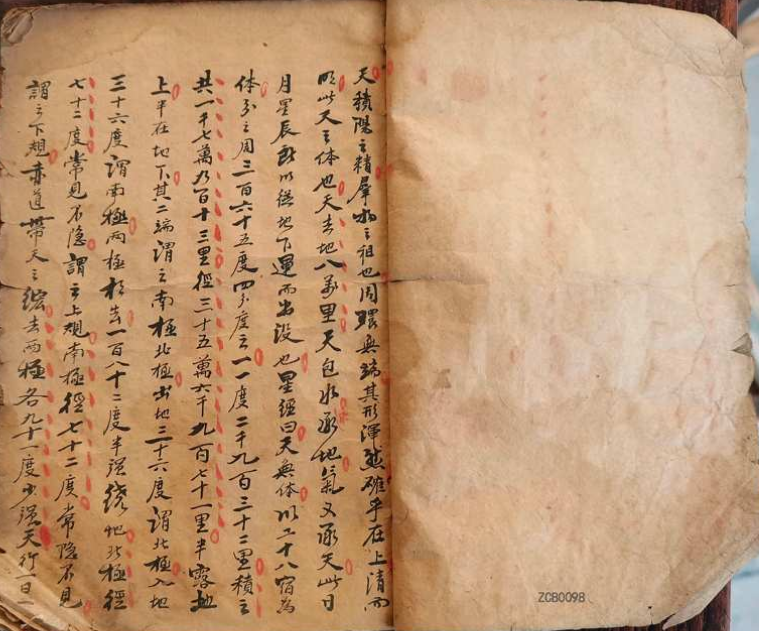 天積陽之精羣物之祖也周環無端其形渾然確乎在上清而
明此天之体也天去地八萬里天包水承地氣又承天此日
月星辰所以從地下運而出没也星經曰天無体以二十八宿為
体分之周三百六十五度四分度之一一度二千九百三十二里積之
共一千七萬九百十三里徑三十五萬六千九百七十一里半露地
上半在地下其二端謂之南極北極出地三十六度謂北極入地
三十六度謂南極兩極相去一百八十二度半强繞北極徑
七十二度常見不隐謂之上規南極徑七十二度常隐不見
謂之下規赤道帶天之紘去兩極各九十一度少强天行一日一
ZCB0098